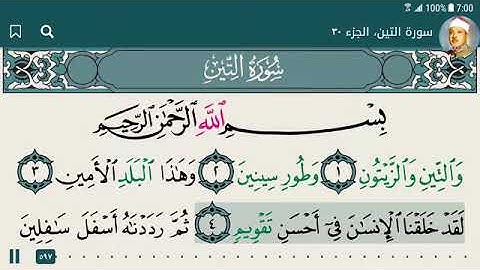 100% 7:00
سورة التين، الجزء ٣٠
سُورَةُ التِّينِ
بِسْمِ اللَّهِ الرَّحْمَٰنِ الرَّحِيمِ
وَالتِّينِ وَالزَّيْتُونِ ١ وَطُورِ سِينِينَ ٢ وَهَٰذَا الْبَلَدِ الْأَمِينِ ٣
لَقَدْ خَلَقْنَا الْإِنسَانَ فِي أَحْسَنِ تَقْوِيمٍ ٤ ثُمَّ رَدَدْنَاهُ أَسْفَلَ سَافِلِينَ
٥٩٧